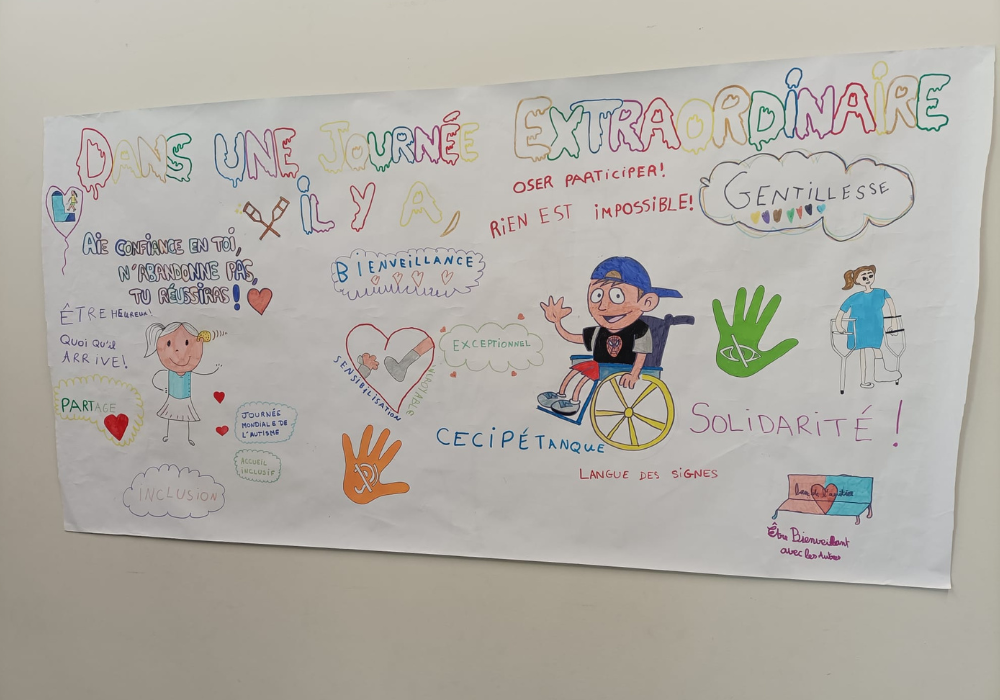 DANS UNE JOURNÉE EXTRAORDINAIRE
IL Y A,
OSER PARTICIPER!
RIEN EST IMPOSSIBLE!
GENTILLESSE
AIE CONFIANCE EN TOI,
N'ABANDONNE PAS,
TU RÉUSSIRAS!
BIENVEILLANCE
ÊTRE HEUREUX!
QUOI QU'IL
ARRIVE!
PARTAGE
SENSIBILISATION
EXCEPTIONNEL
JOURNÉE
MONDIALE DE
L'AUTISME
ACCUEIL
INCLUSIF
INCLUSION
CECIPÉTANQUE
SOLIDARITÉ!
LANGUE DES SIGNES
Être Bienveillant
avec les Autres